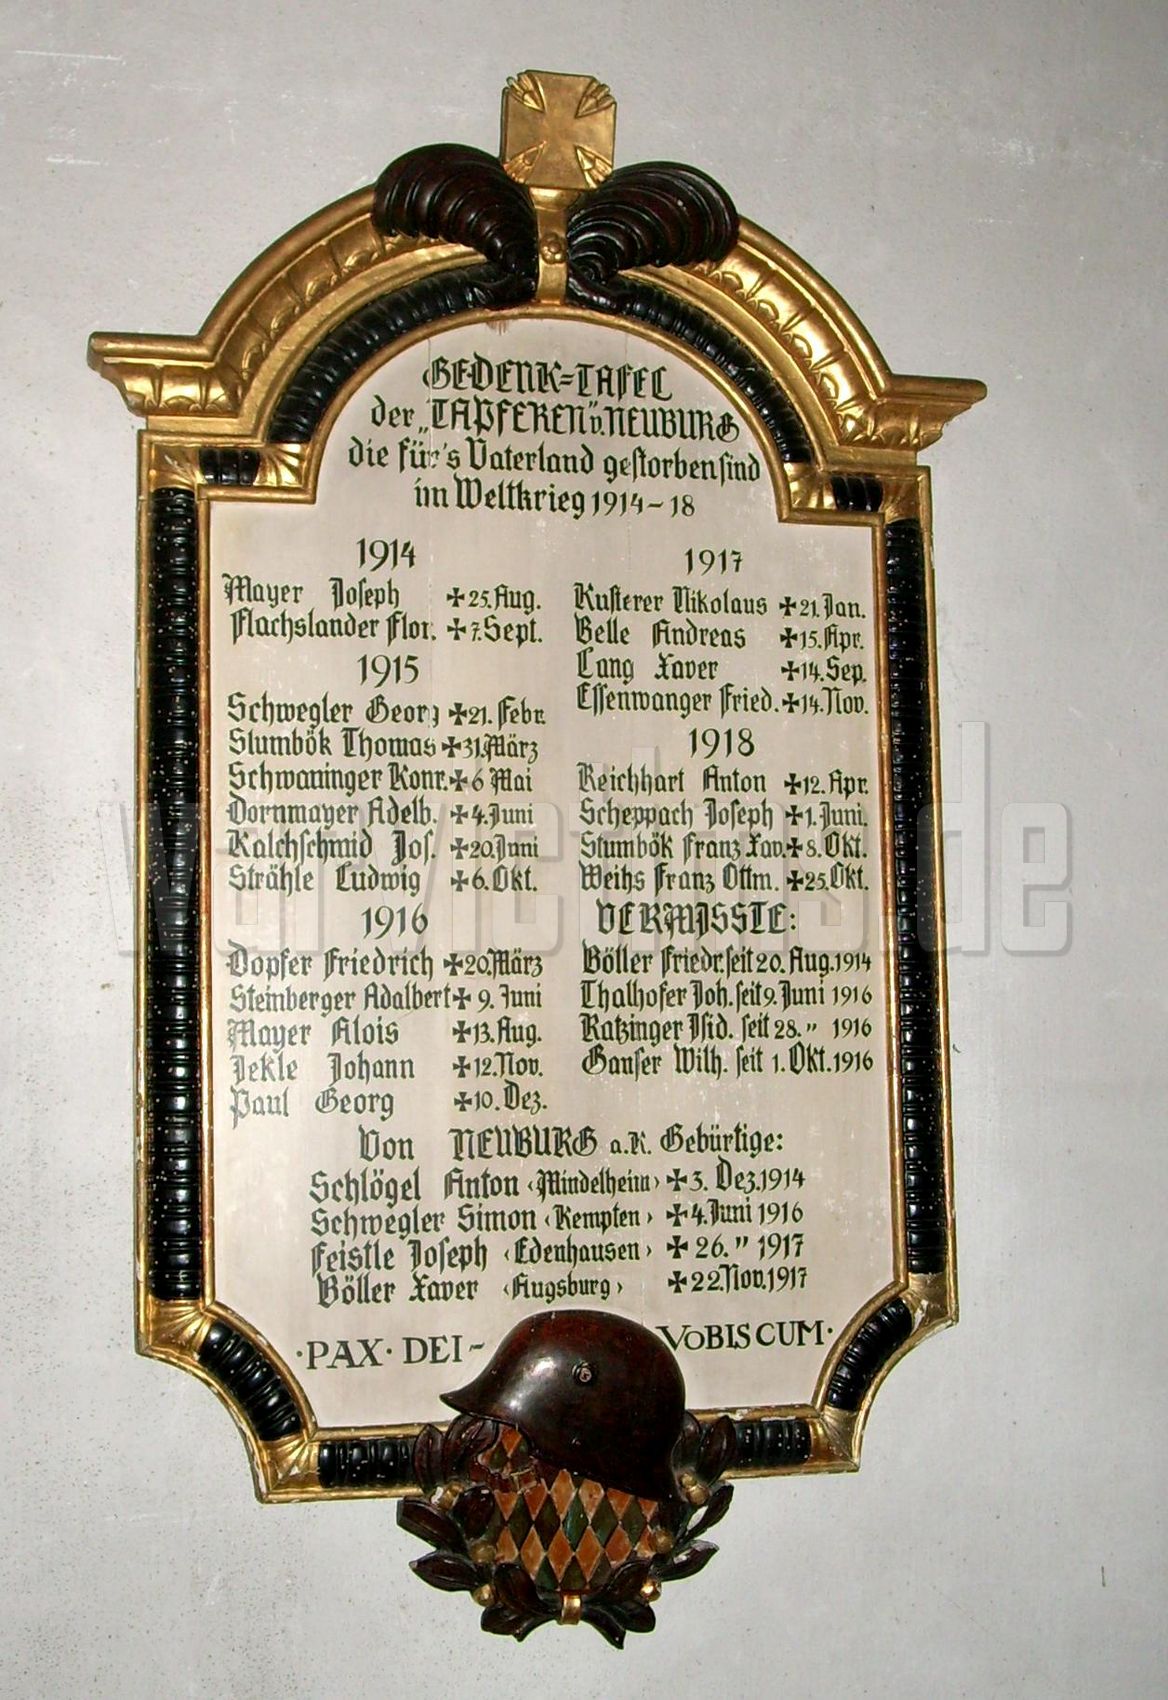 GEDENK=TAFEL
der „TAPFEREN" v. NEUBURG
die für's Vaterland gestorben sind
im Weltkrieg 1914-18
1914
Mayer Joseph ✠ 25. Aug.
Flachslander Flor. ✠ 7. Sept.
1915
Schwegler Georg ✠ 21. Febr.
Stumbök Thomas ✠ 31. März
Schwaninger Konr. ✠ 6 Mai
Dornmayer Adelb. ✠ 4. Juni
Kalchschmid Jos. ✠ 20. Juni
Strähle Ludwig ✠ 6. Okt.
1916
Dopfer Friedrich ✠ 20. März
Steinberger Adalbert ✠ 9. Juni
Mayer Alois ✠ 13. Aug.
Jekle Johann ✠ 12. Nov.
Paul Georg ✠ 10. Dez.
1917
Kusterer Nikolaus ✠ 21. Jan.
Belle Andreas ✠ 15. Apr.
Lang Xaver ✠ 14. Sep.
Essenwanger Fried. ✠ 14. Nov.
1918
Reichhart Anton ✠ 12. Apr.
Scheppach Joseph ✠ 1. Juni.
Stumbök Franz Xav. ✠ 8. Okt.
Weihs Franz Ottm. ✠ 25. Okt.
VERMISSTE:
Böller Friedr. seit 20. Aug. 1914
Thalhofer Joh. seit 9. Juni 1916
Ratzinger Isid. seit 28. " 1916
Ganser Wilh. seit 1. Okt. 1916
Von NEUBURG a.K. Gebürtige:
Schlögel Anton ‹Mindelheim› ✠ 3. Dez. 1914
Schwegler Simon ‹Kempten› ✠ 4. Juni 1916
Feistle Joseph ‹Edenhausen› ✠ 26. " 1917
Böller Xaver ‹Augsburg› ✠ 22. Nov. 1917
·PAX· DEI- VOBISCUM·
warvictims.de